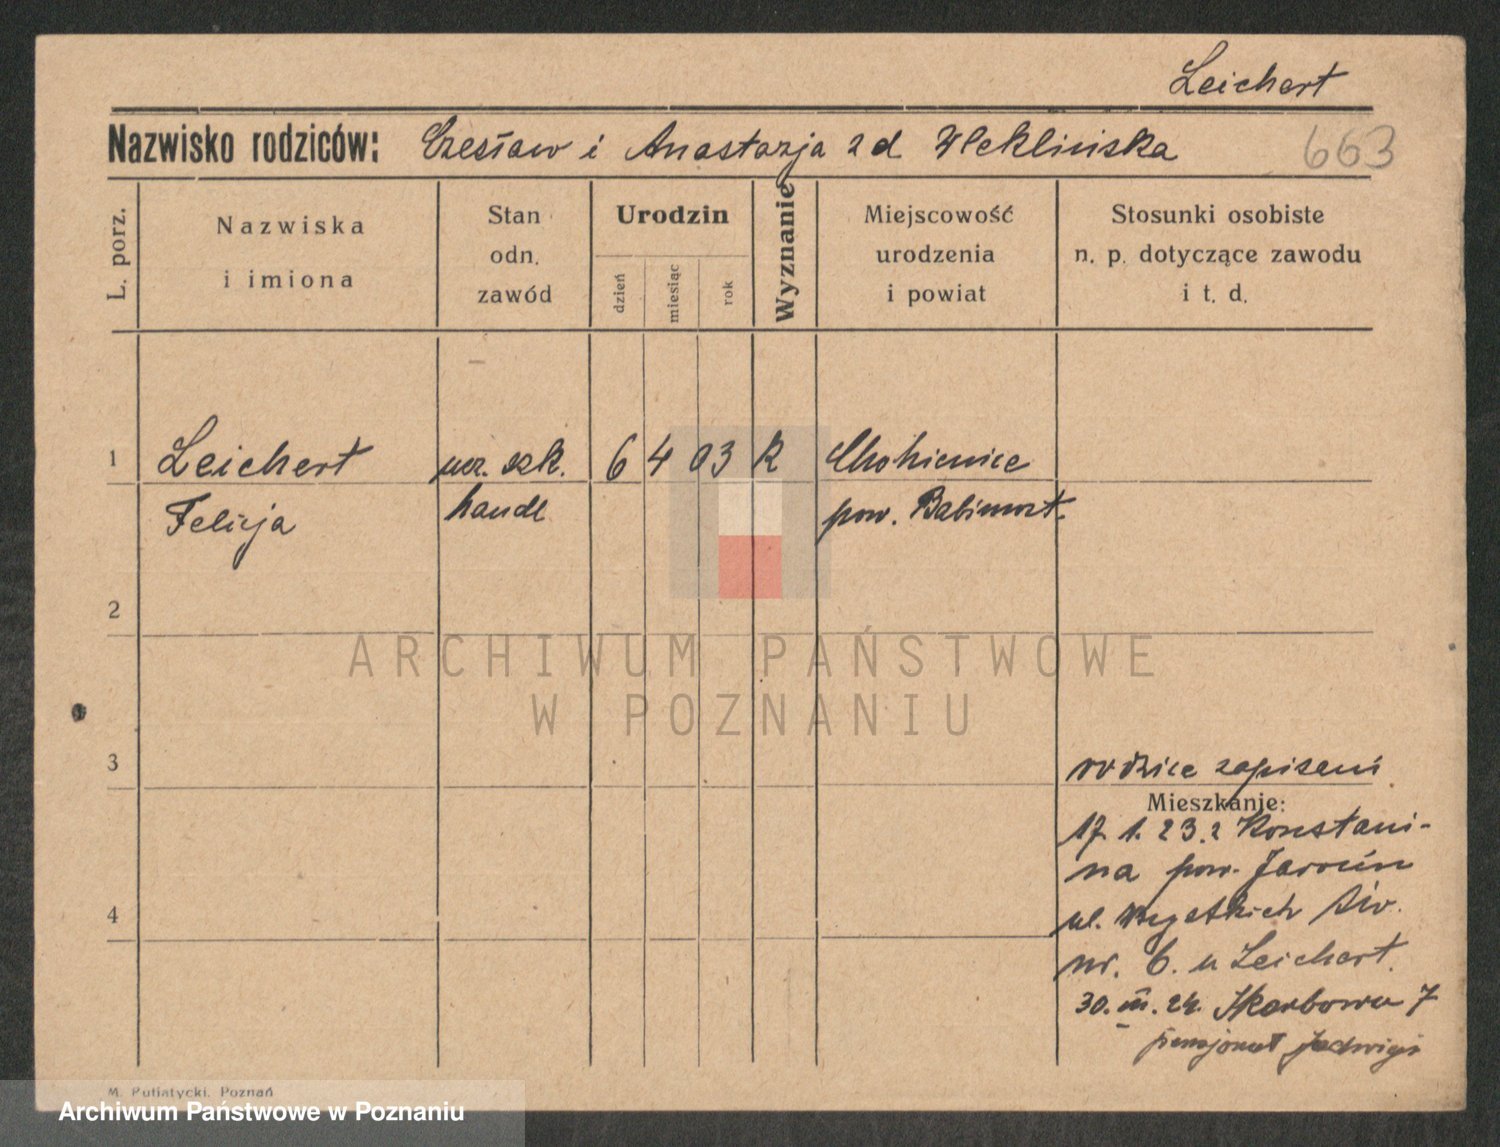 Leichert
Nazwisko rodziców: Czesław i Anastazja z d Weklińska
663
L. porz.
Nazwiska
i imiona
Stan
odn.
zawód
Urodzin
dzień
miesiąc
rok
Wyznanie
Miejscowość
urodzenia
i powiat
Stosunki osobiste
n. p. dotyczące zawodu
i t. d.
1 Leichert ucz. szk. 6 4 03 k Chobienice
Felicja handl pow. Babimost.
2
ARCHIWUM PAŃSTWOWE
W POZNANIU
3
rodzice zapisani
Mieszkanie:
17. 1. 23. z Konstan-
na pow. Jarocin
4
ul. Wszystkich Św.
nr. 6. u Leichert.
30. III. 24. Skarbowa 7
pensjonat Jadwigi
M. Putiatycki. Poznań
Archiwum Państwowe w Poznaniu